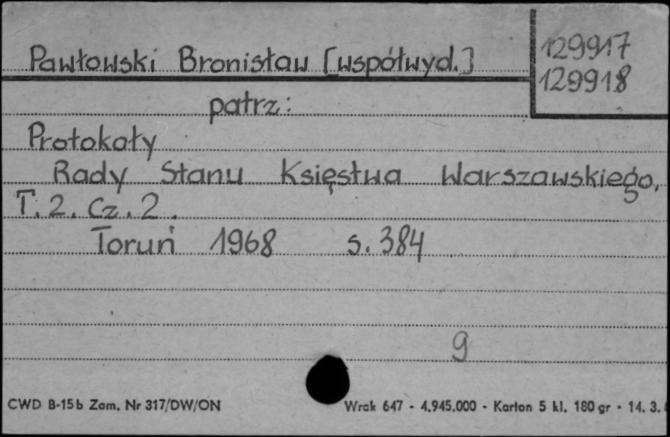 Pawłowski Bronisław [współwyd.]
129917
129918
patrz:
Protokoły
Rady Stanu Księstwa Warszawskiego.
T. 2. Cz. 2.
Toruń 1968 s. 384
9
CWD B-15b Zam. Nr 317/DW/ON
Wrak 647 - 4.945.000 - Karton 5 kl. 180 gr - 14. 3.